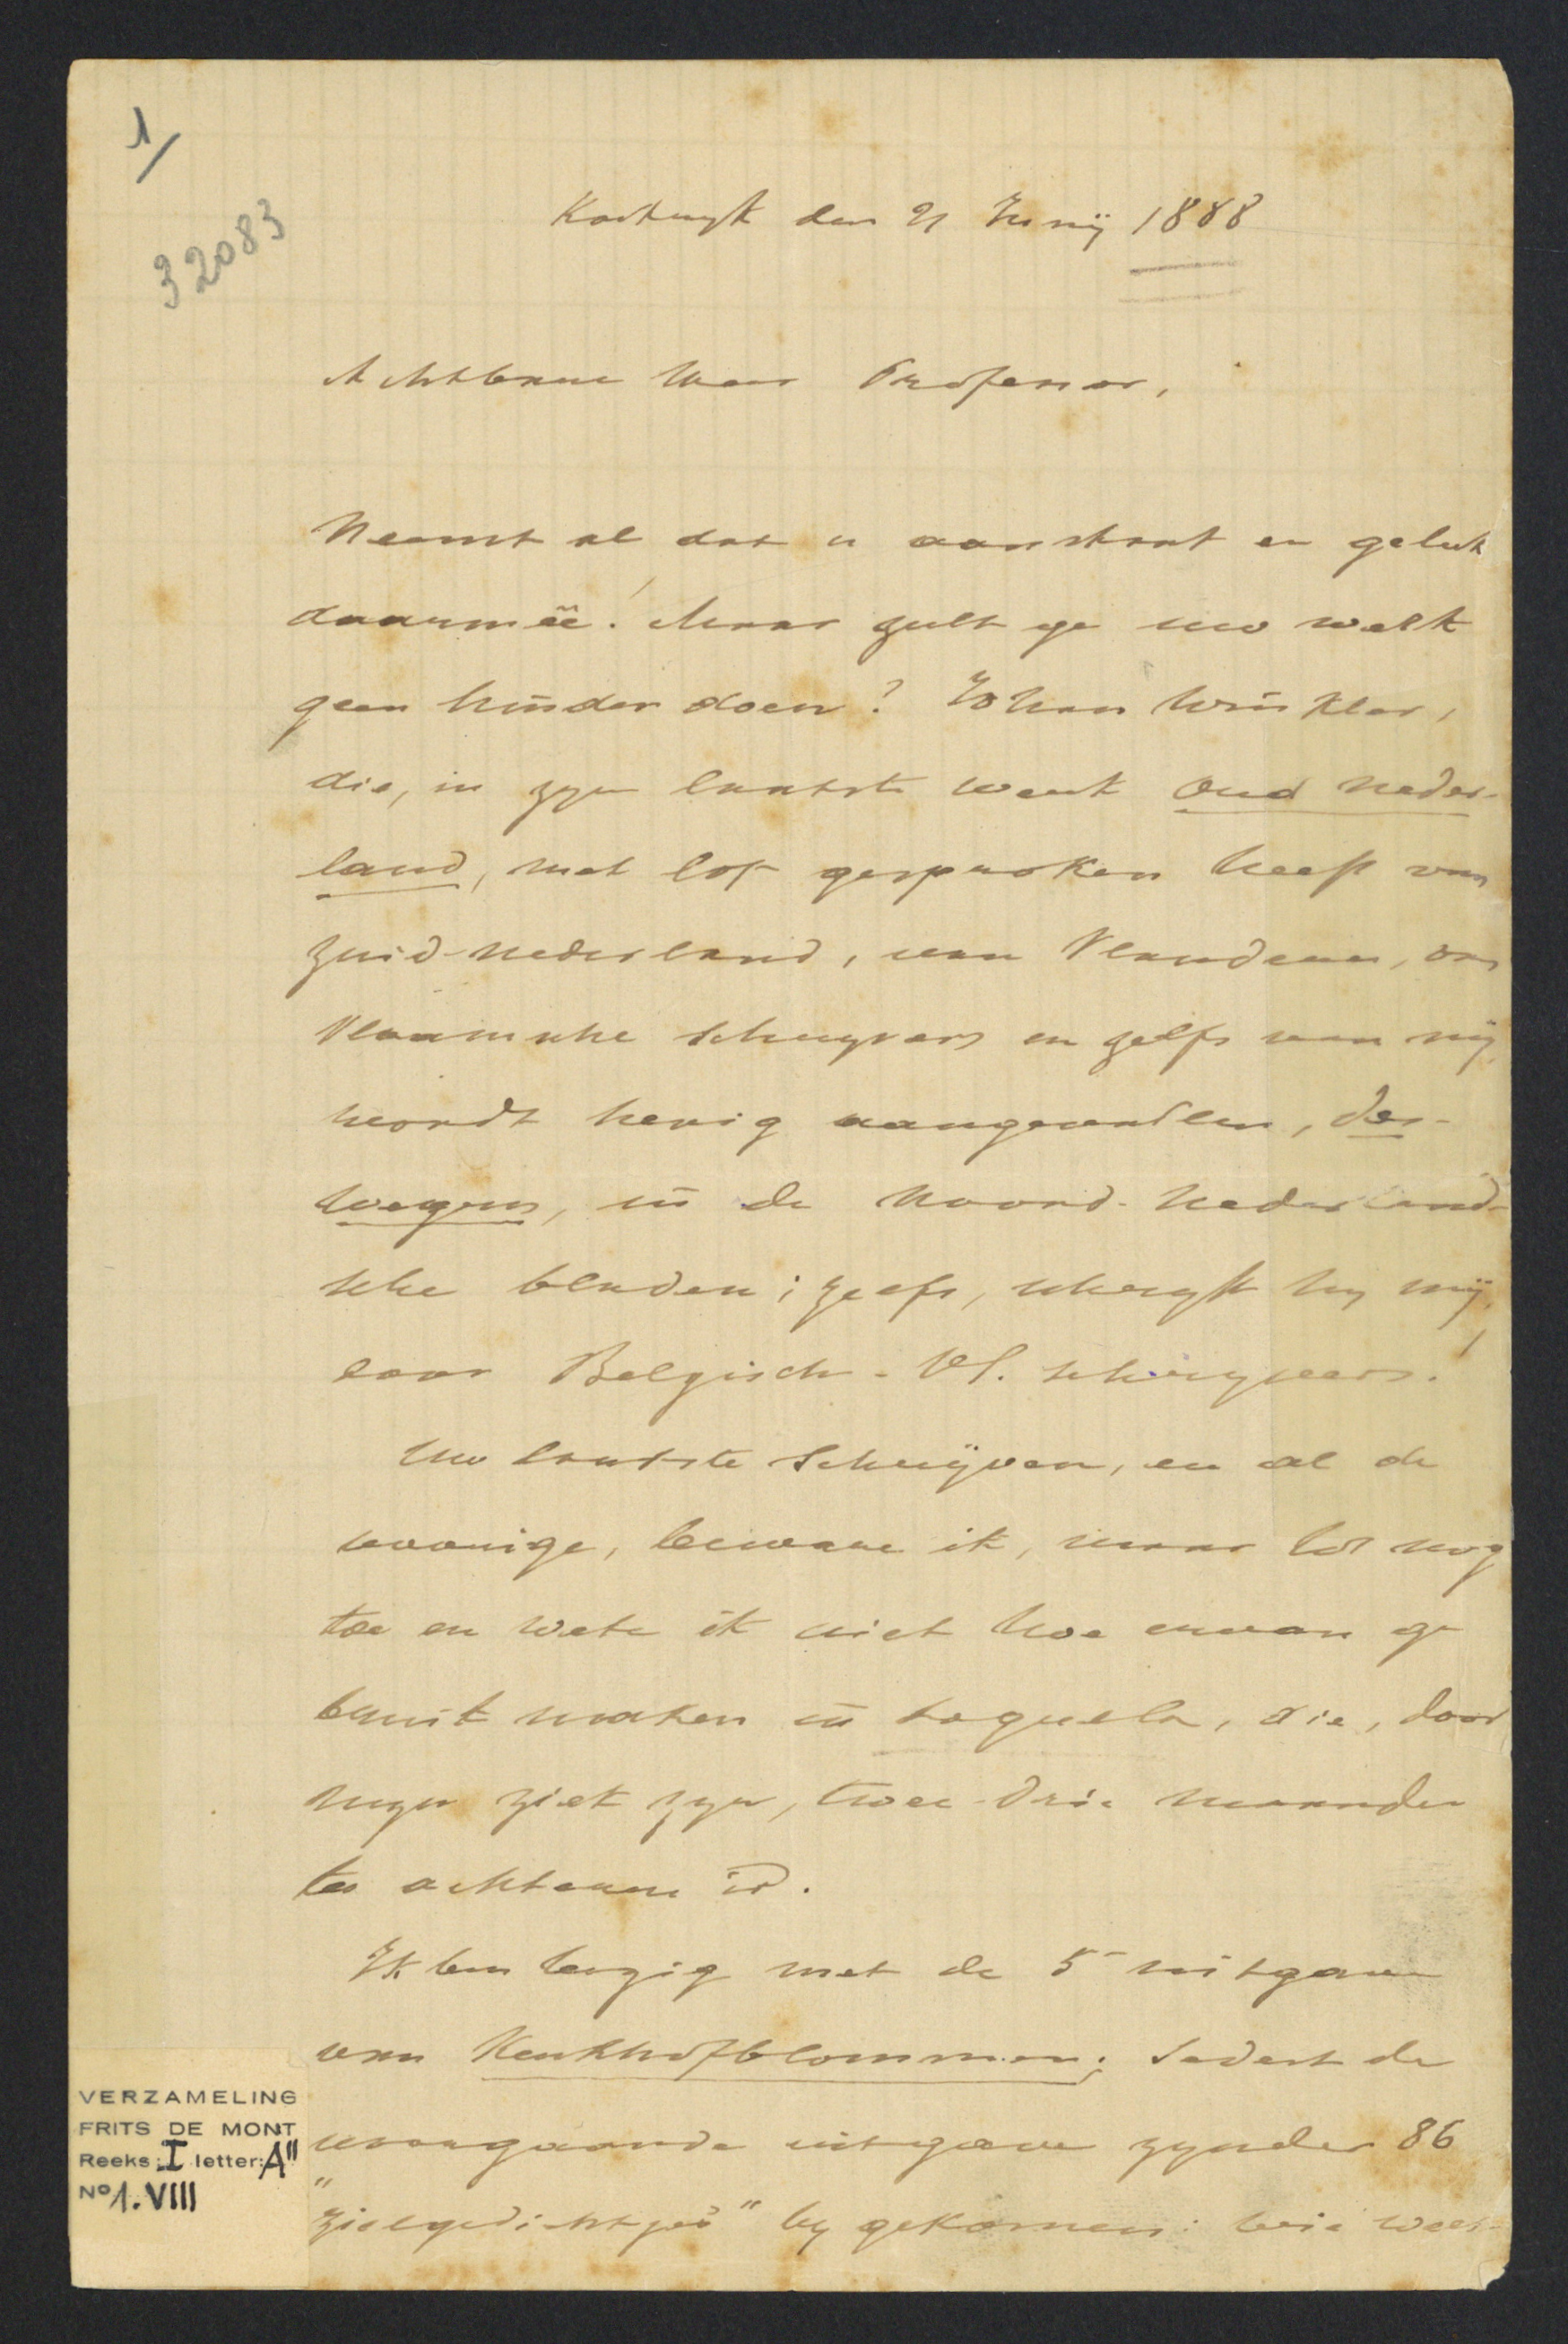 1/
32083
Kortryk den 21 Junij 1888
Achtbare Heer Professor,
Neemt al dat u aanstaat en geluk
daarmeê! Maar zult ge uw welk
geen hinder doen? Johan Winkler,
die, in zyn laatste werk Oud Neder-
land, met lof gesproken heeft van
Zuid-Nederland, van Vlanderen, van
Vlaamsche schryvers en zelfs van mij
wordt hevig aangevallen, der-
wegen, in de Noord-Nederland-
sche bladen; zelfs, schryft hy mij,
door Belgisch-Vl. schryvers!
Uw laatste schrijven, en al de
voorige, beware ik, maar tot nog
toe en wete ik niet hoe ervan ge
bruik maken in Loquela, die, door
myn ziek zyn, twee drie maanden
ten achteren is.
Ik ben bezig met de 5e uitgave
van Kerkhofblommen; sedert de
voorgaande uitgave zynder 86
"zielgedichtjes" by gekomen: wie weet
VERZAMELING
FRITS DE MONT
Reeks: I letter: A"
No 1. VIII